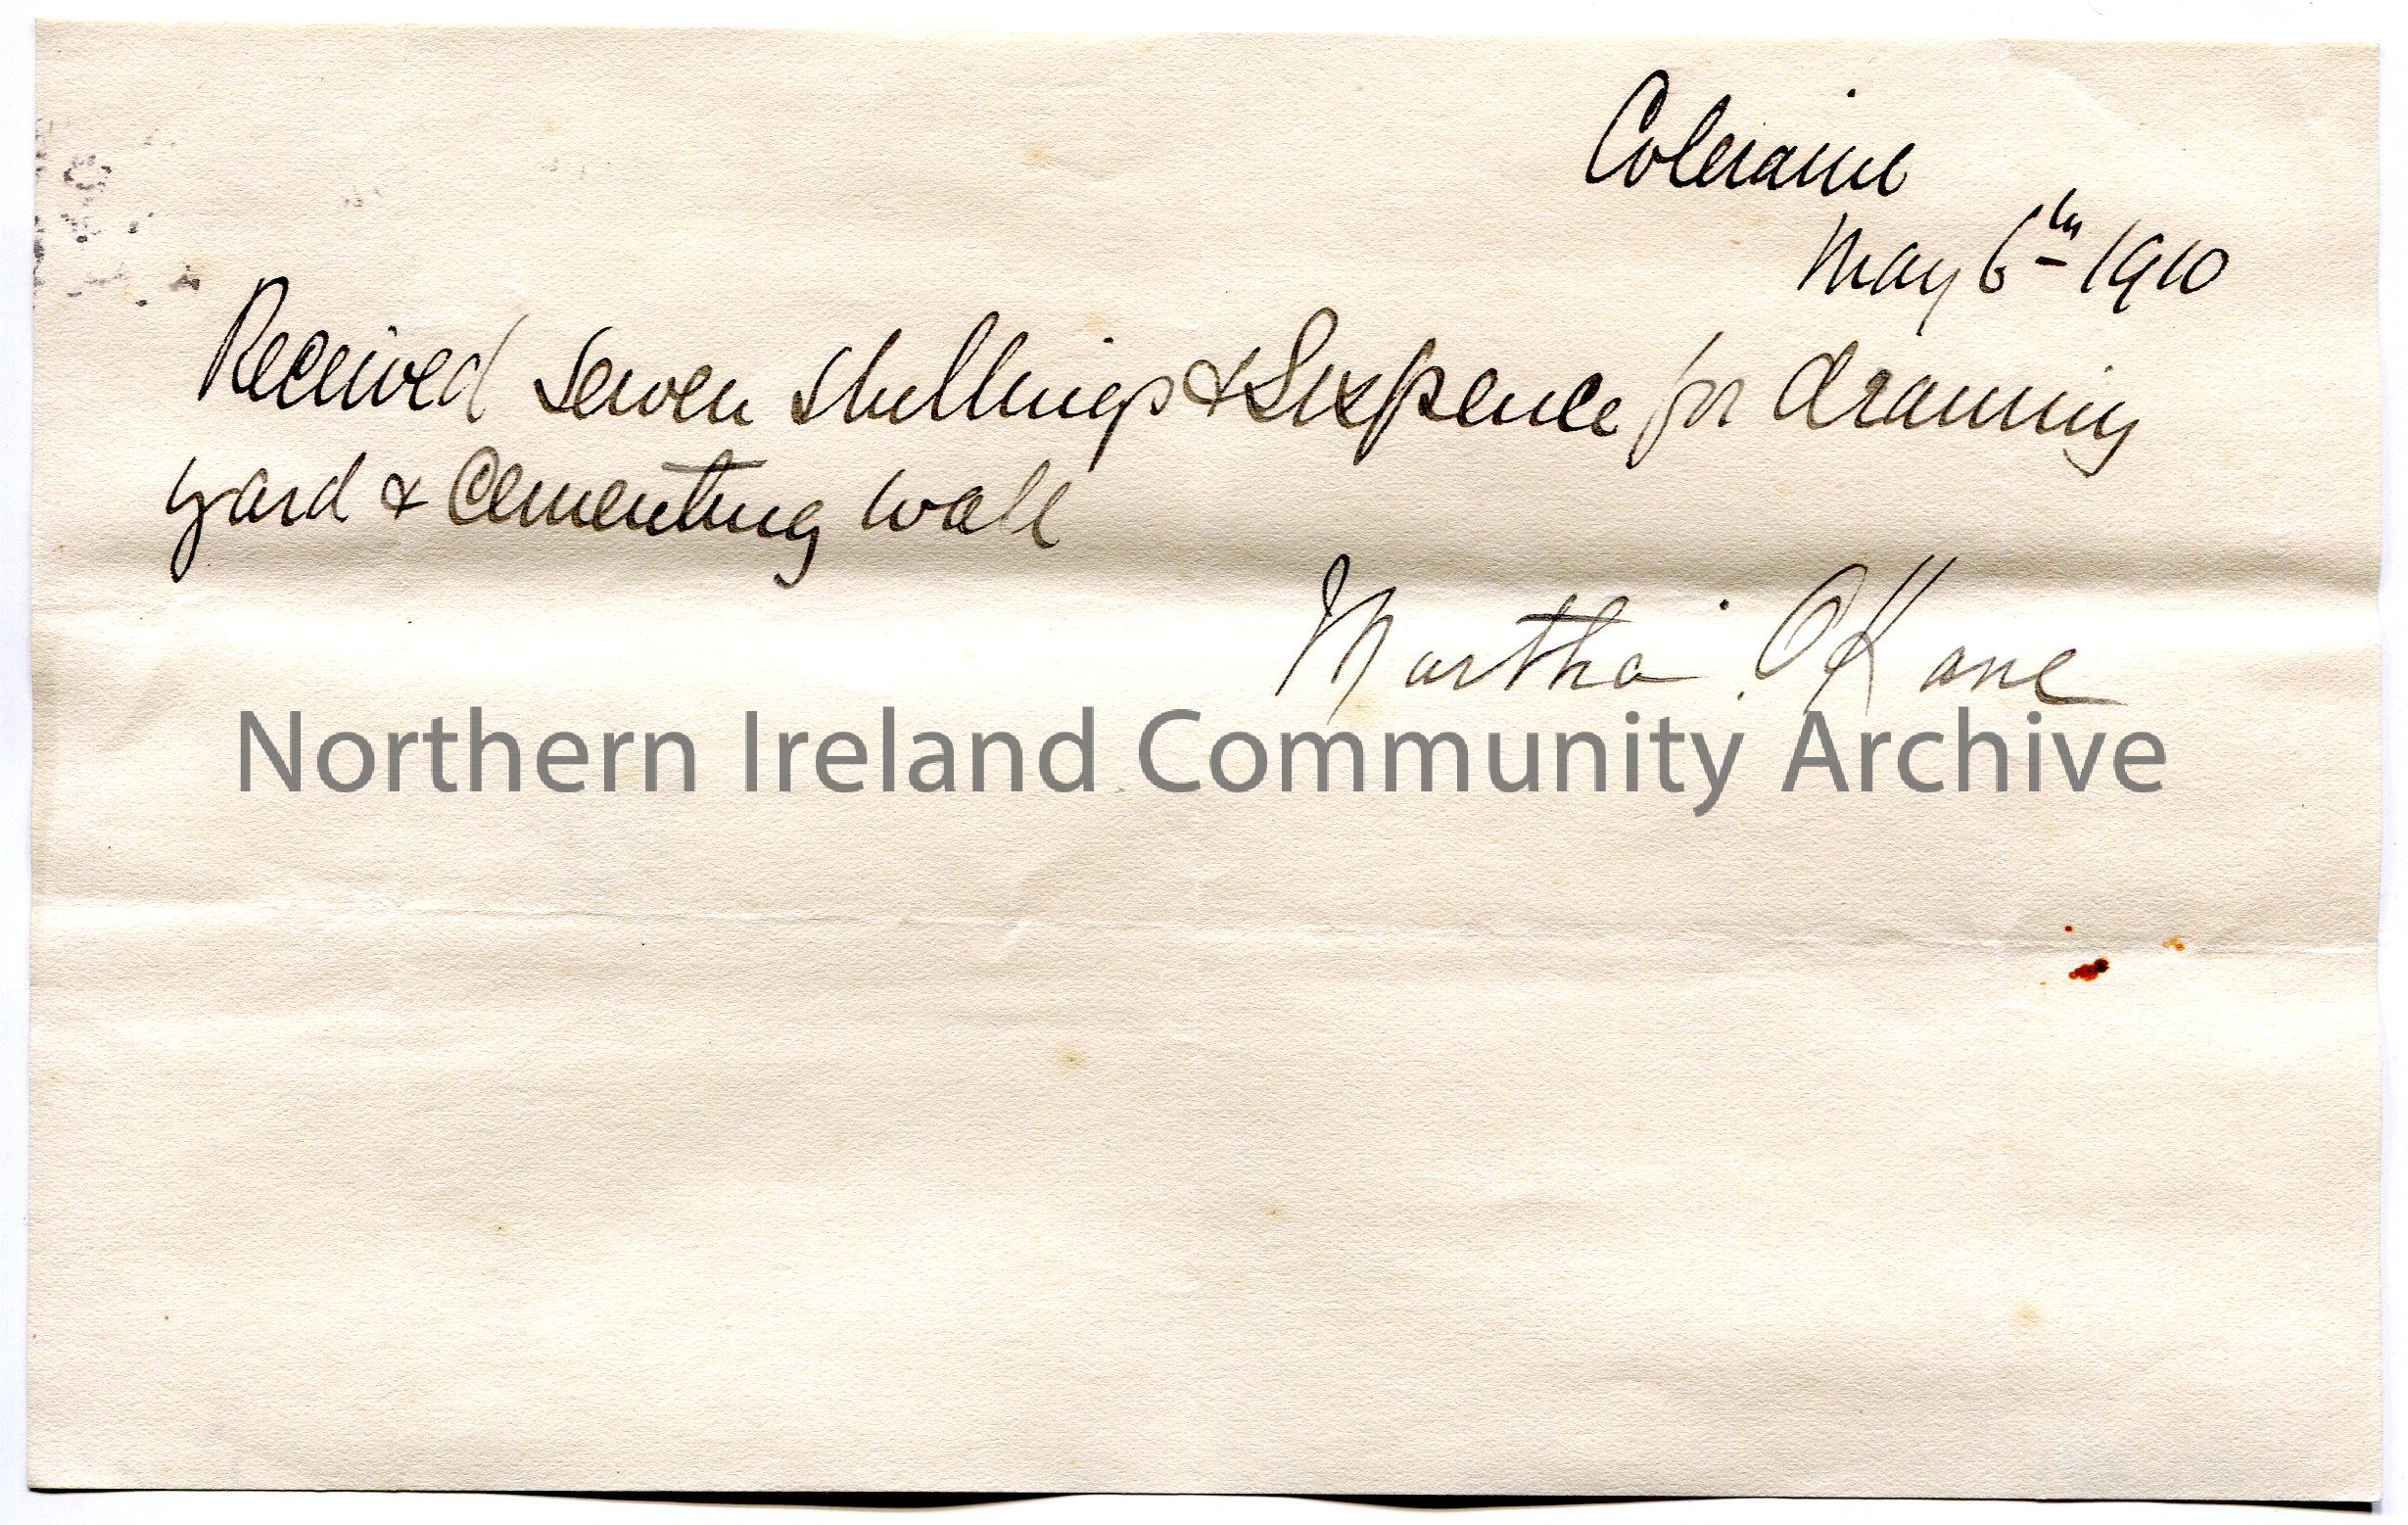 Coleraine
May 6th 1910
Received seven shillings & Sixpence for draining
yard & Cementing wall
Martha O'Kane
Northern Ireland Community Archive